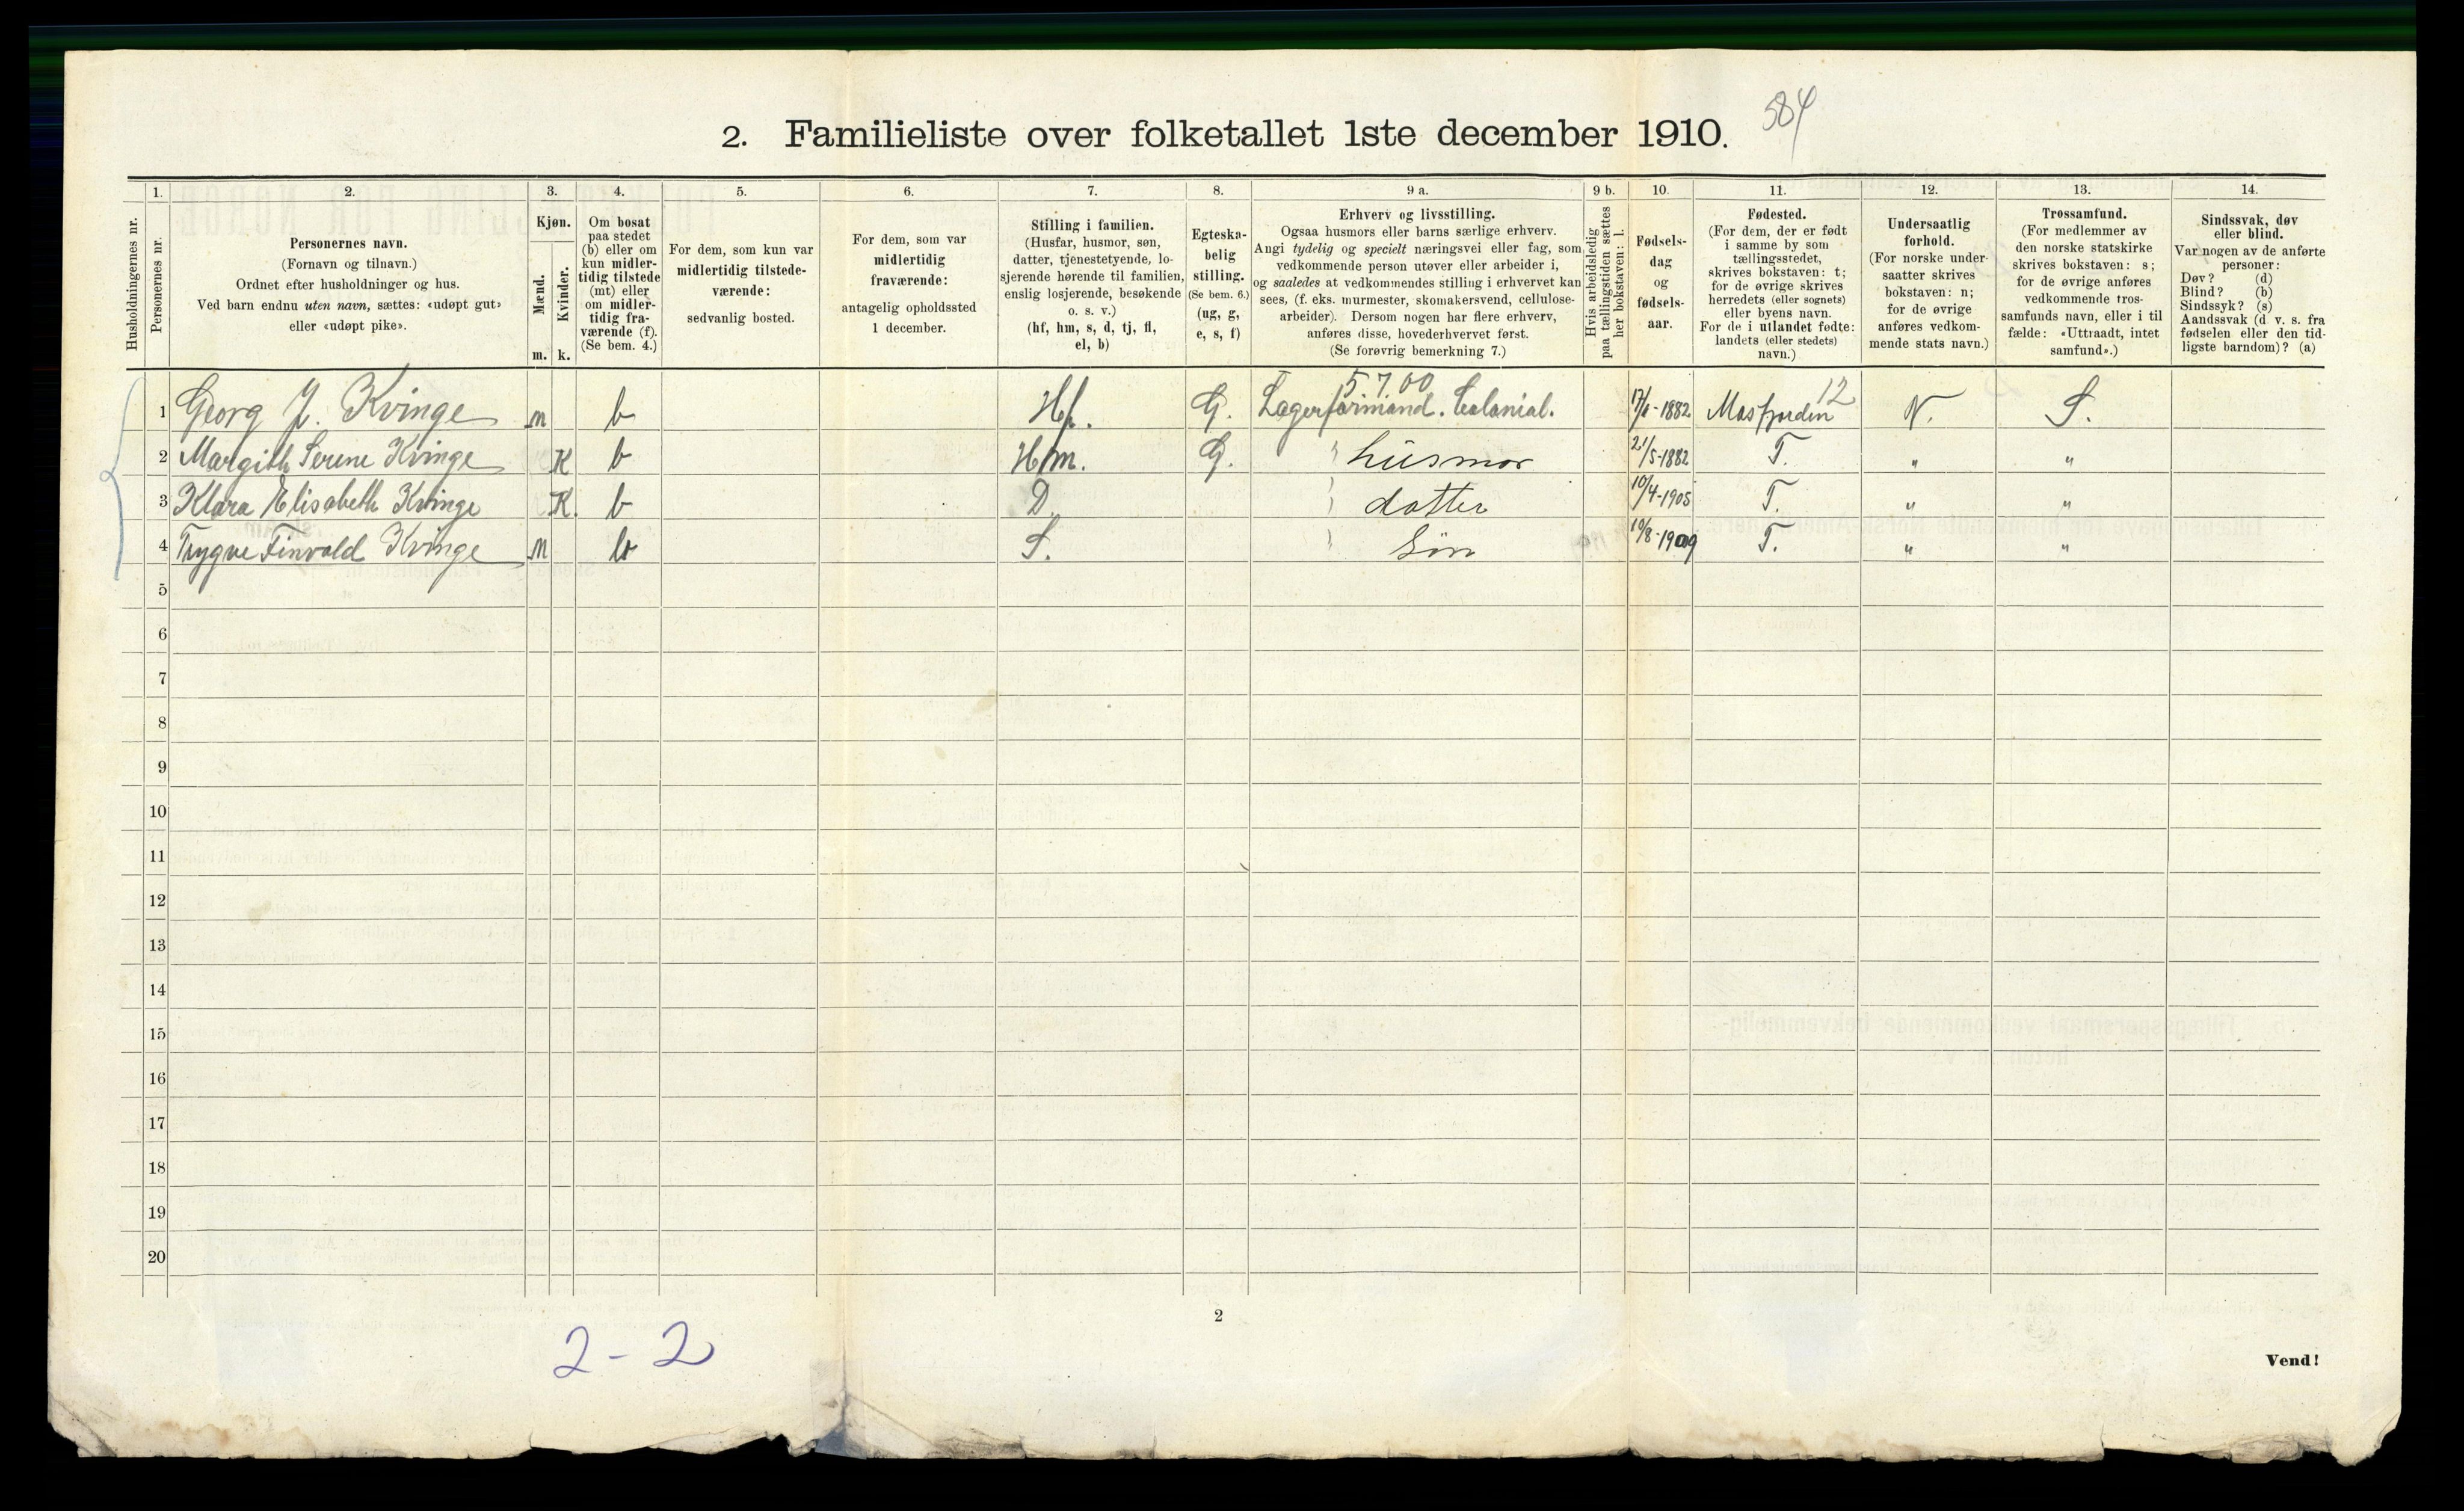 2. Familieliste over folketallet 1ste december 1910.
584
Husholdningernes nr.
1.
Personernes nr.
2.
Personernes navn.
(Fornavn og tilnavn.)
Ordnet efter husholdninger og hus.
Ved barn endnu uten navn, sættes: «udøpt gut»
eller «udøpt pike».
3.
Kjøn.
Mænd.
Kvinder.
m. k.
4.
Om bosat
paa stedet
(b) eller om
kun midler-
tidig tilstede
(mt) eller
om midler-
tidig fra-
værende (f).
(Se bem. 4.)
5.
For dem, som kun var
midlertidig tilstede-
værende:
sedvanlig bosted.
6.
For dem, som var
midlertidig
fraværende:
antagelig opholdssted
1 december.
7.
Stilling i familien.
(Husfar, husmor, søn,
datter, tjenestetyende, lo-
sjerende hørende til familien,
enslig losjerende, besøkende
o. s. v.)
(hf, hm, s, d, tj, fl,
el, b)
8.
Egteska-
belig
stilling.
(Se bem. 6.)
(ug, g,
e, s, f)
9 a.
Erhverv og livsstilling.
Ogsaa husmors eller barns særlige erhverv.
Angi tydelig og specielt næringsvei eller fag, som
vedkommende person utøver eller arbeider i,
og saaledes at vedkommendes stilling i erhvervet kan
sees, (f. eks. murmester, skomakersvend, cellulose-
arbeider). Dersom nogen har flere erhverv,
anføres disse, hovederhvervet først.
(Se forøvrig bemerkning 7.)
9 b.
Hvis arbeidsledig
paa tællingstiden sættes
her bokstaven: l.
10.
Fødsels-
dag
og
fødsels-
aar.
11.
Fødested.
(For dem, der er født
i samme by som
tællingsstedet,
skrives bokstaven: t;
for de øvrige skrives
herredets (eller sognets)
eller byens navn.
For de i utlandet fødte:
landets (eller stedets)
navn.)
12.
Undersaatlig
forhold.
(For norske under-
saatter skrives
bokstaven: n;
for de øvrige
anføres vedkom-
mende stats navn.)
13.
Trossamfund.
(For medlemmer av
den norske statskirke
skrives bokstaven: s;
for de øvrige anføres
vedkommende tros-
samfunds navn, eller i til
fælde: «Uttraadt, intet
samfund».)
14.
Sindssvak, døv
eller blind.
Var nogen av de anførte
personer:
Døv? (d)
Blind? (b)
Sindssyk? (s)
Aandssvak (d. v. s. fra
fødselen eller den tid-
ligste barndom)? (a)
5700 12
1 Georg J. Kvinge m b Hf. G. Lagerformand. Colonial. 1882 Masfjorden N. S.
2 Margith Serene Kvinge K b Hm. G. " husmor 21/5-1882 T. " "
3 Klara Elisabeth Kvinge K. b D. " datter 10/4-1905 T. " "
4 Trygve Finvald Kvinge m b S. " Sön 10/8-1909 T. " "
5
6
7
8
9
10
11
12
13
14
15
16
17
18
19
20
2
2-2
Vend!